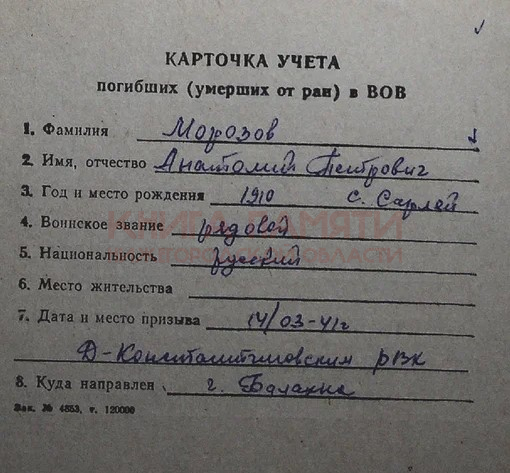 КАРТОЧКА УЧЕТА
погибших (умерших от ран) в ВОВ
1. Фамилия Морозов
2. Имя, отчество Анатолий Петрович
3. Год и место рождения 1910 с. Сарлей
КНИГА ПАМЯТИ
4. Воинское звание рядовой
НИЖЕГОРОДСКОЙ ОБЛАСТИ
5. Национальность русский
6. Место жительства
7. Дата и место призыва 14/03-41г
Д-Константиновским РВК
8. Куда направлен г. Балахна
Зак. № 4853, т. 120000